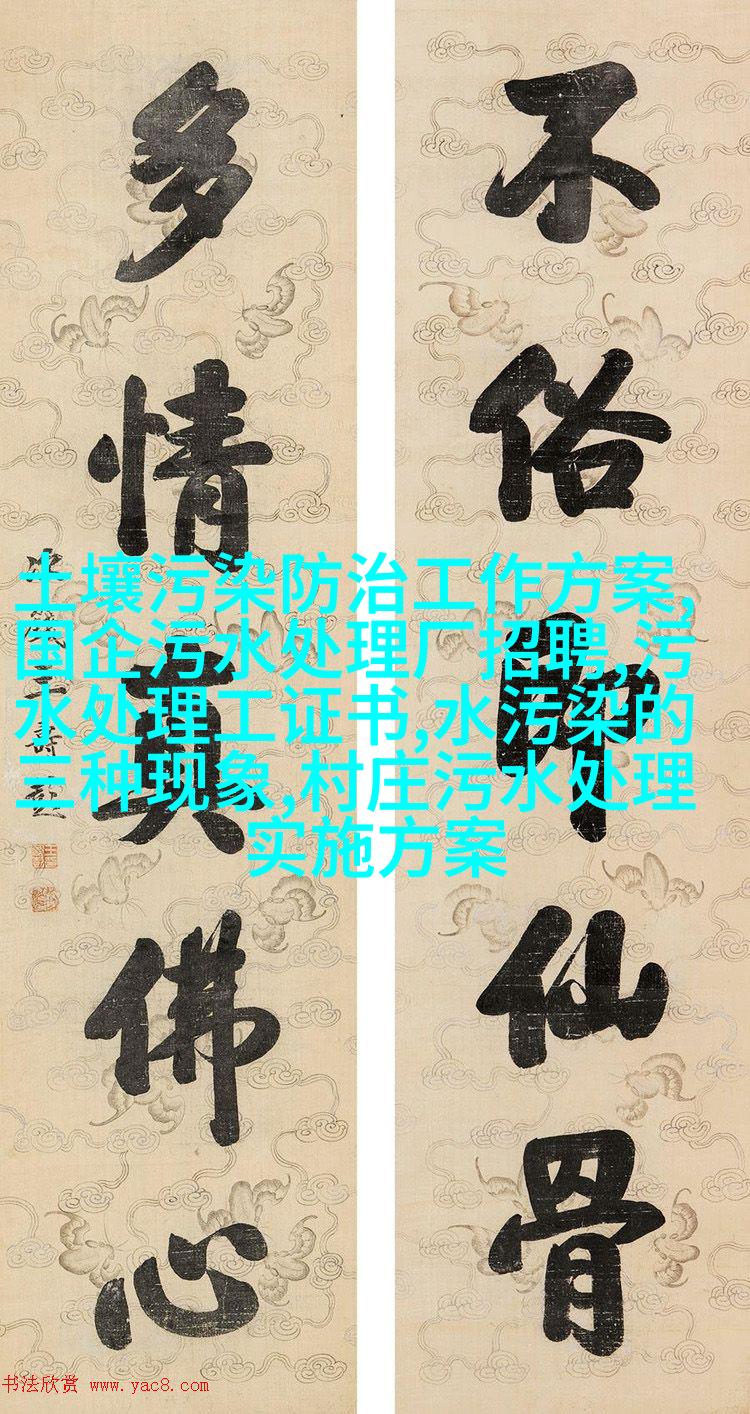 不俗即仙骨
多情真佛心
土壤污染防治工作方案,
国企污水处理厂招聘,污
水处理工证书,水污染的
三种现象,村庄污水处理
实施方案
书法欣赏 www.yac8.com